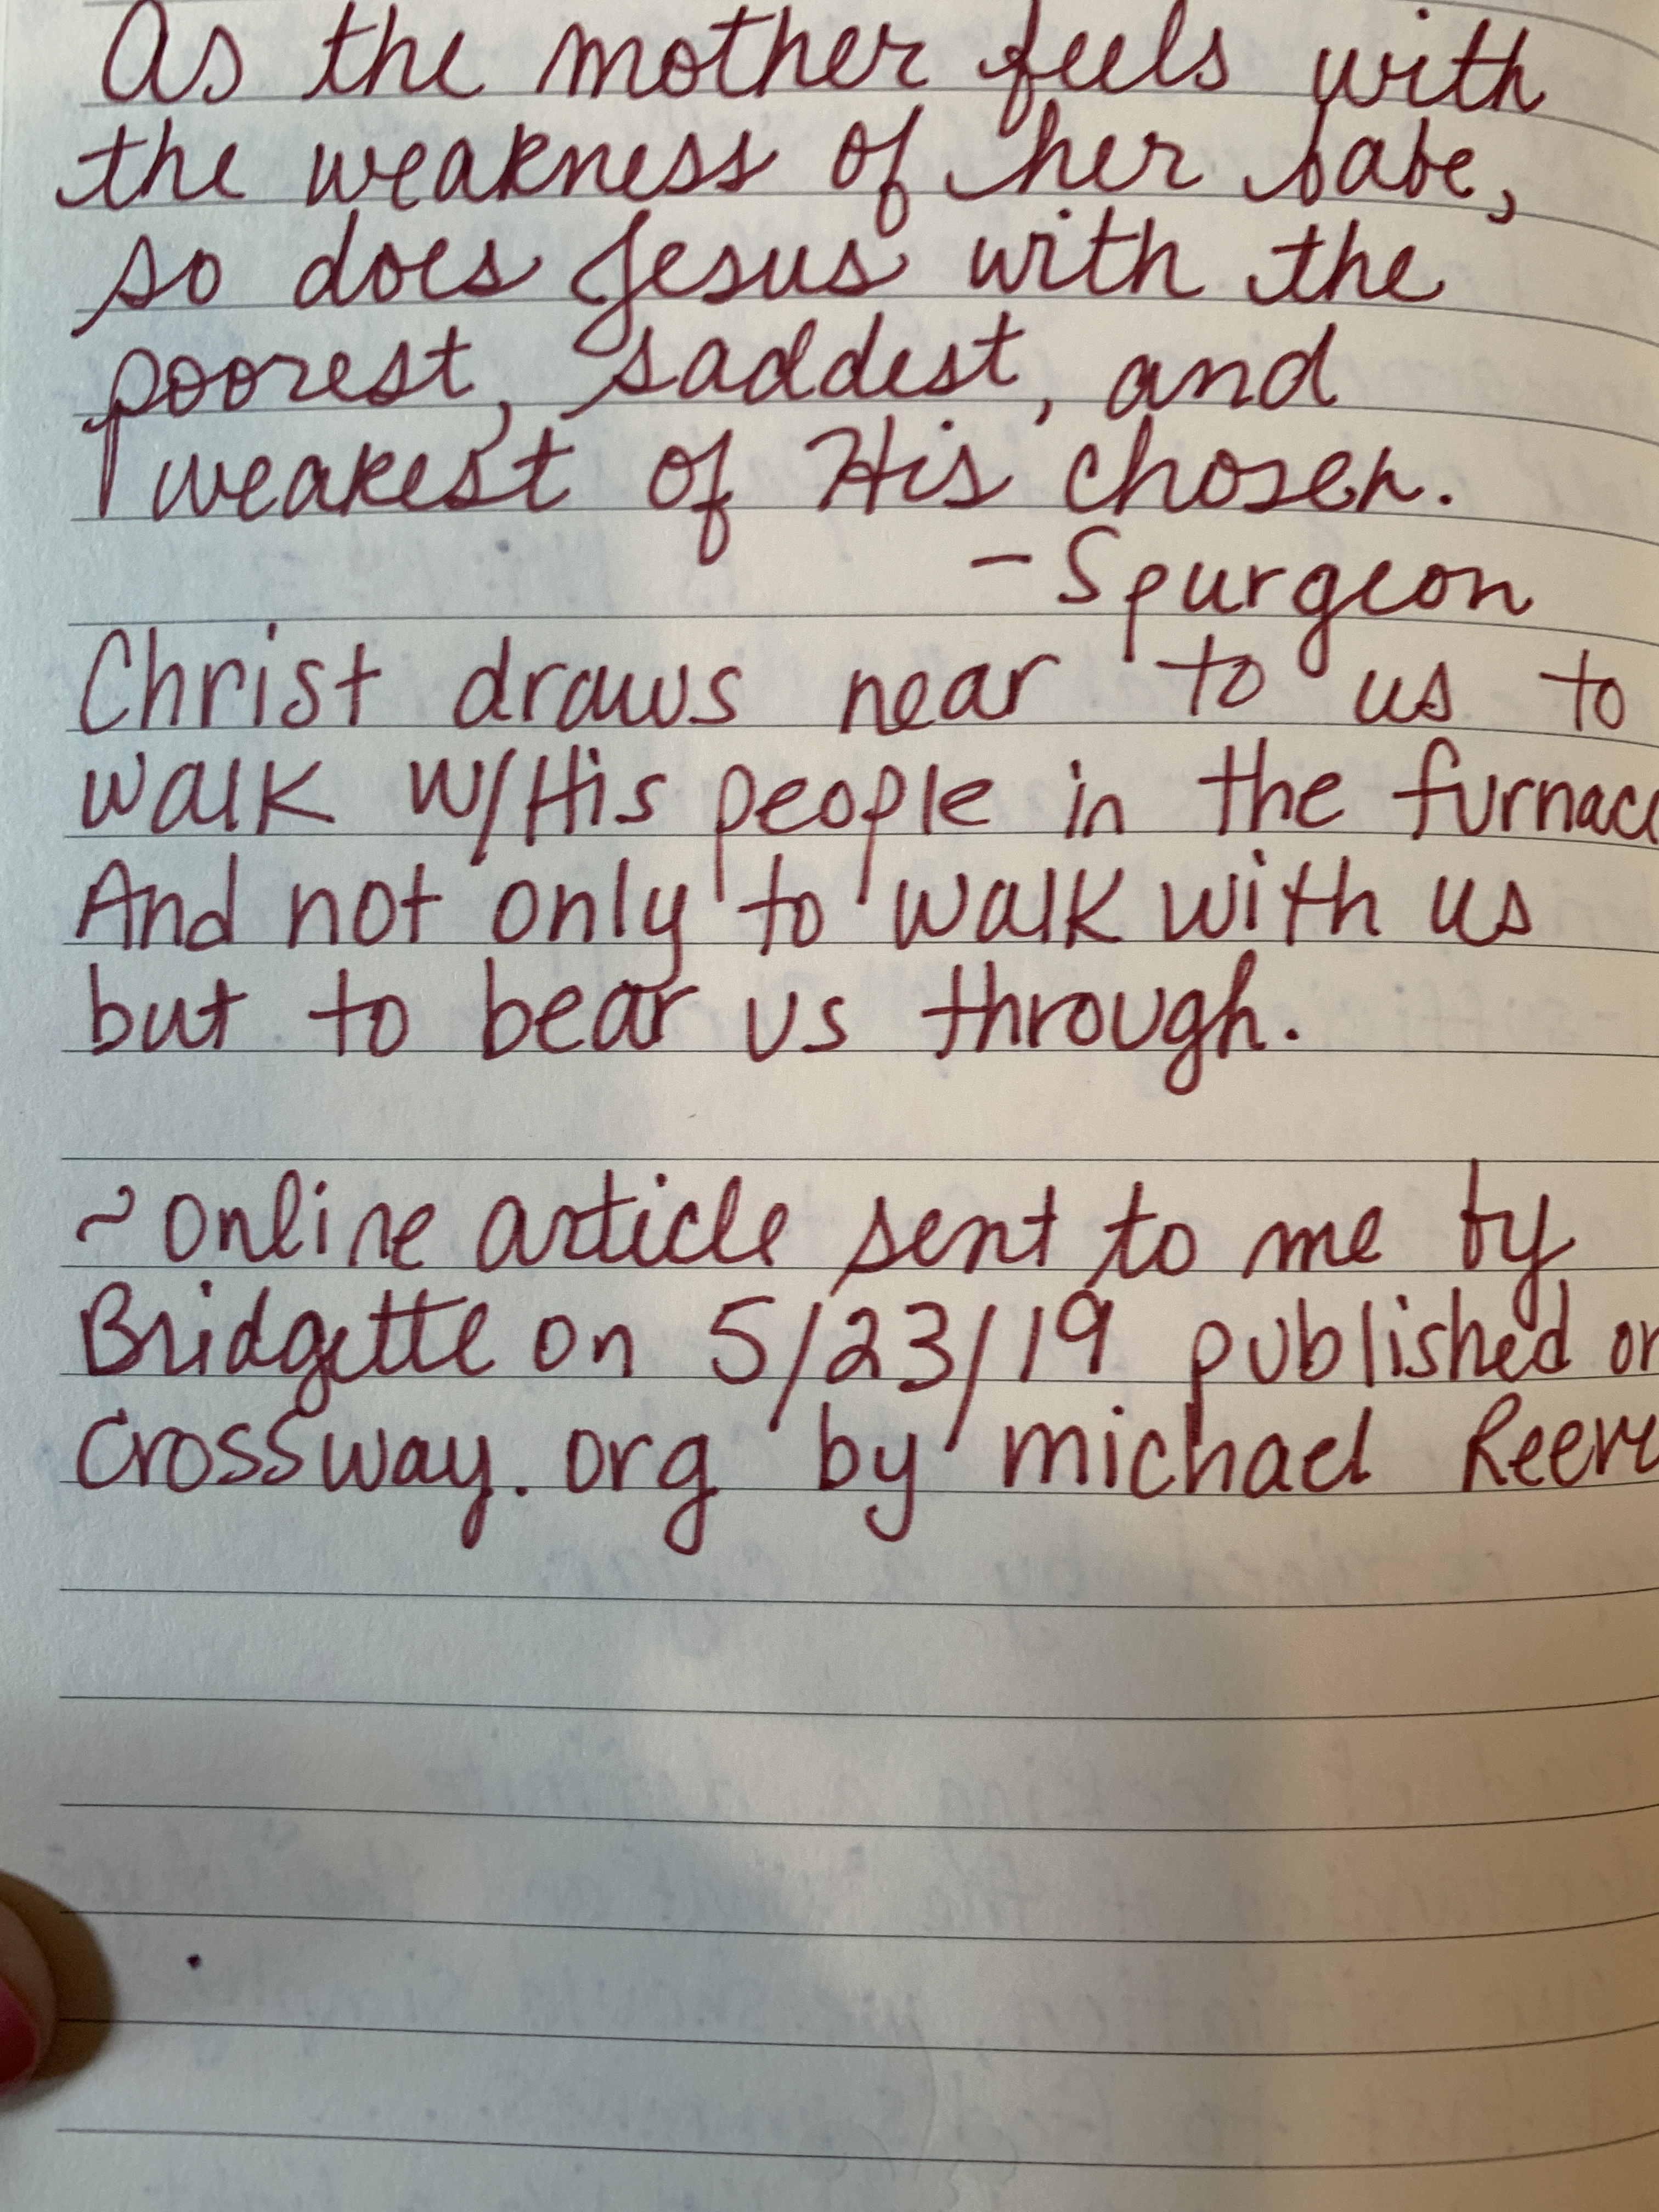 As the mother feels with
the weakness of her babe,
so does Jesus with the
poorest, saddest, and
weakest of His chosen.
- Spurgeon
Christ draws near to us to
walk w/His people in the furnac
And not only to walk with us
but to bear us through.
~ Online article sent to me by
Bridgette on 5/23/19 published on
Crossway.org by Michael Reeve